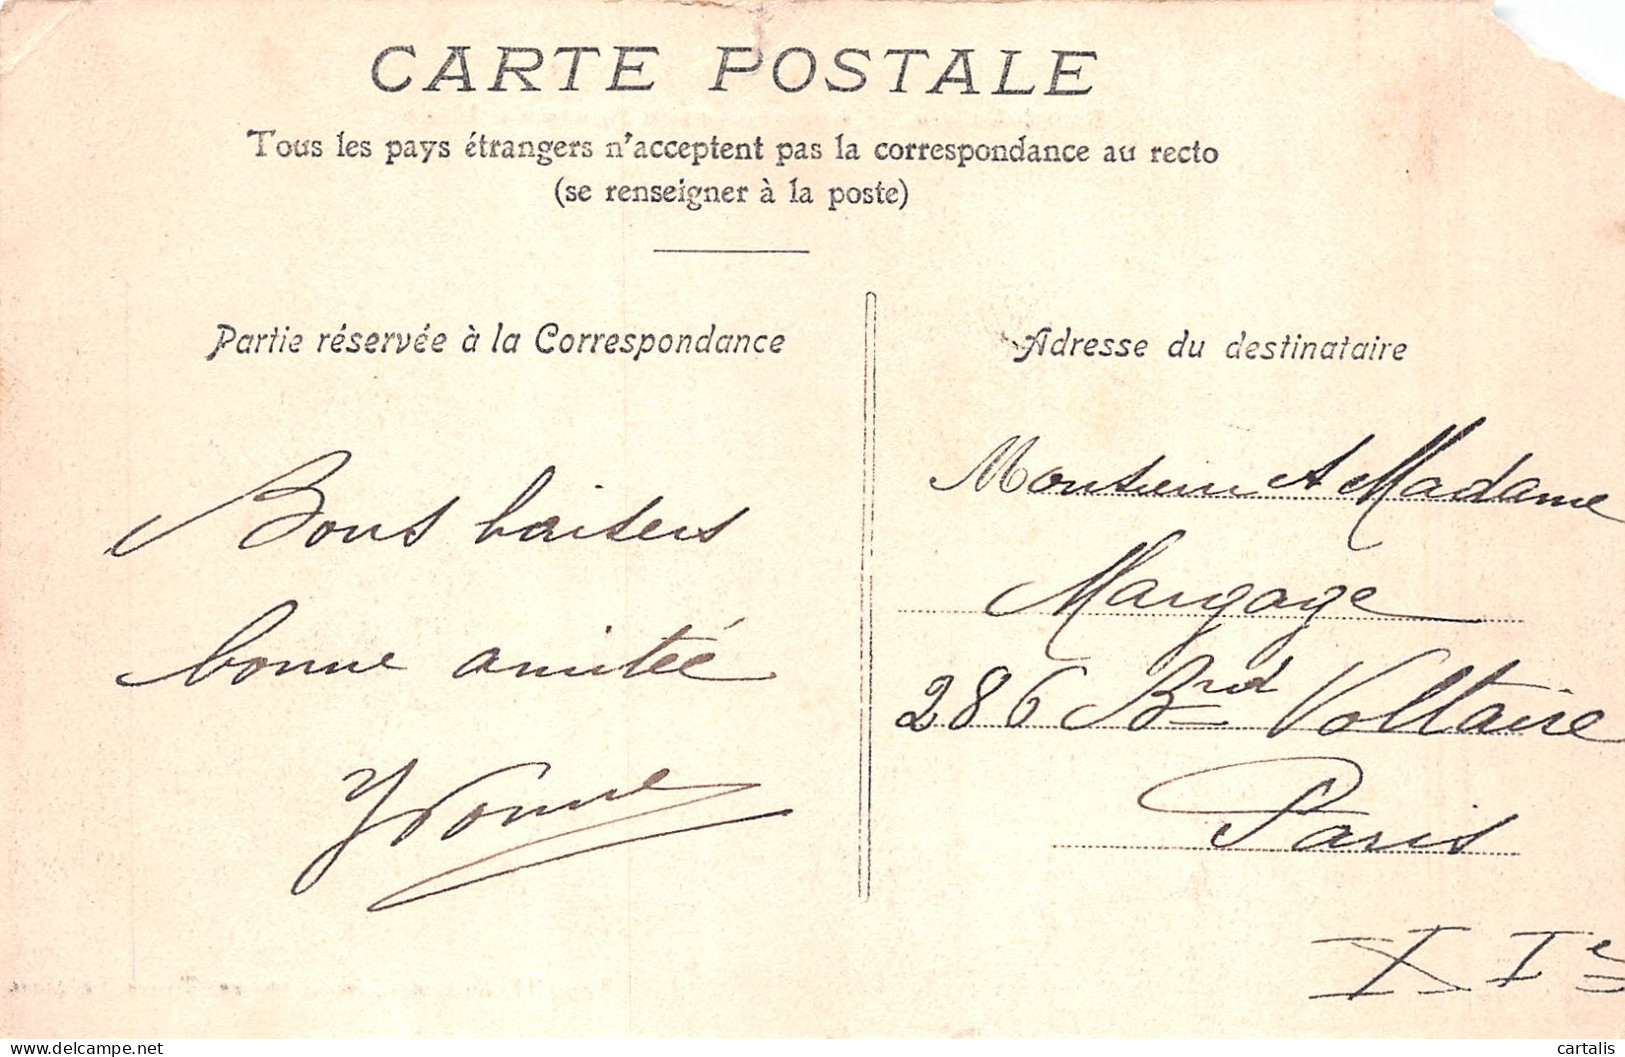 CARTE POSTALE
Tous les pays étrangers n'acceptent pas la correspondance au recto
(se renseigner à la poste)
Partie réservée à la Correspondance
Bons baisers
bonne amitée
Yvonne
Adresse du destinataire
Monsieur et Madame
Margage
286 Brd Voltaire
Paris
XIe
delcampe.net
cartalis